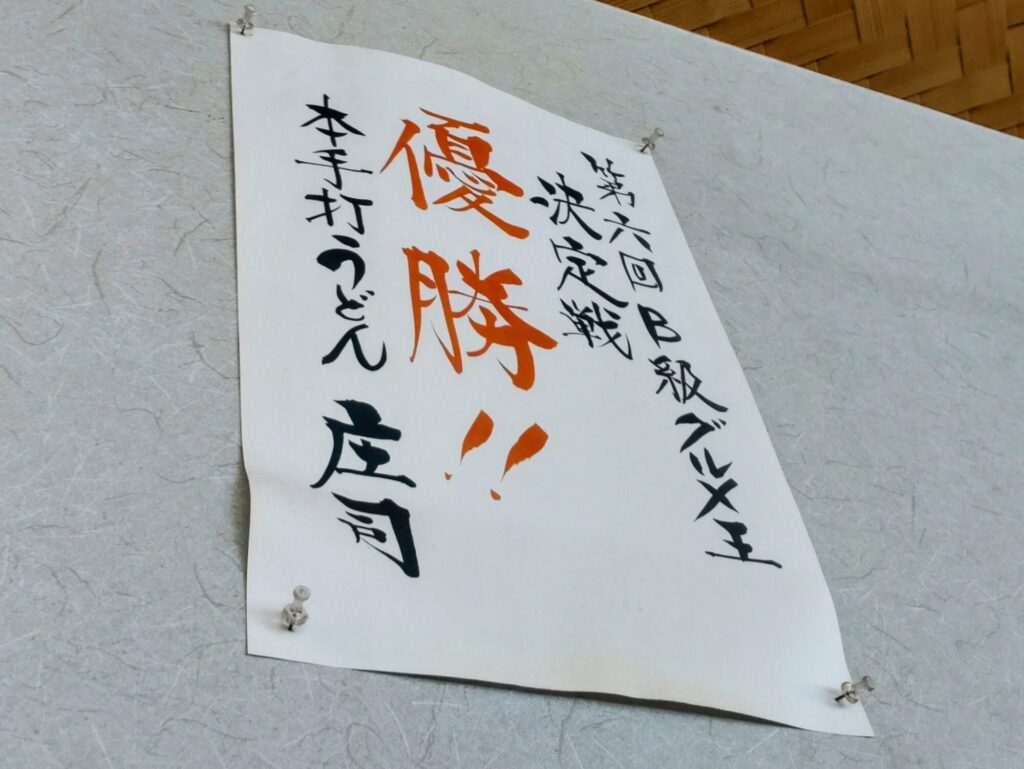 第六回B級グルメ王
決定戦
優勝!!
本手打うどん 庄司